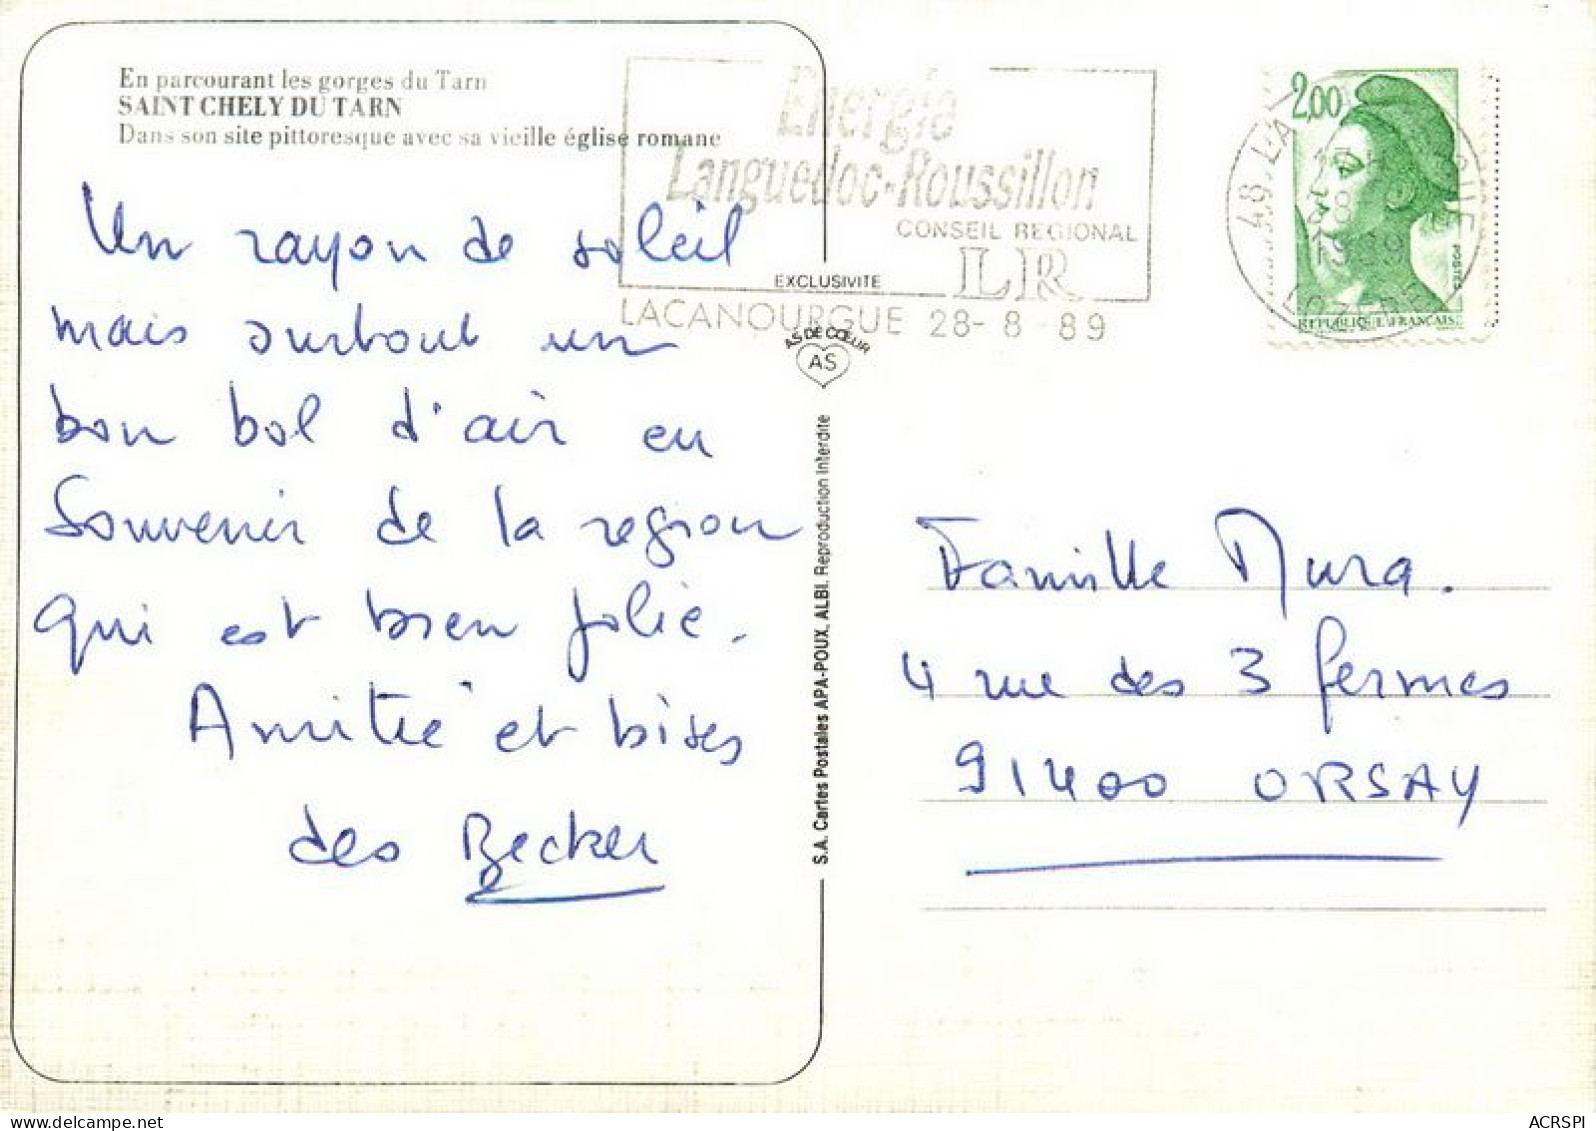 En parcourant les gorges du Tarn
SAINT CHELY DU TARN
Dans son site pittoresque avec sa vieille église romane
Un rayon de soleil
mais surtout un
bon bol d'air en
souvenir de la region
qui est bien jolie.
Amitié et bises
des Becker
Energie
Languedoc-Roussillon
CONSEIL REGIONAL
LR
LACANOURGUE 28-8-89
EXCLUSIVITE
AS DE CŒUR
AS
S.A. Cartes Postales APA-POUX. ALBI. Reproduction Interdite
2,00
48 LA
1989
LOZERE
POSTES
REPUBLIQUE FRANÇAISE
Famille Mura.
4 rue des 3 fermes
91400 ORSAY
ACRSPI